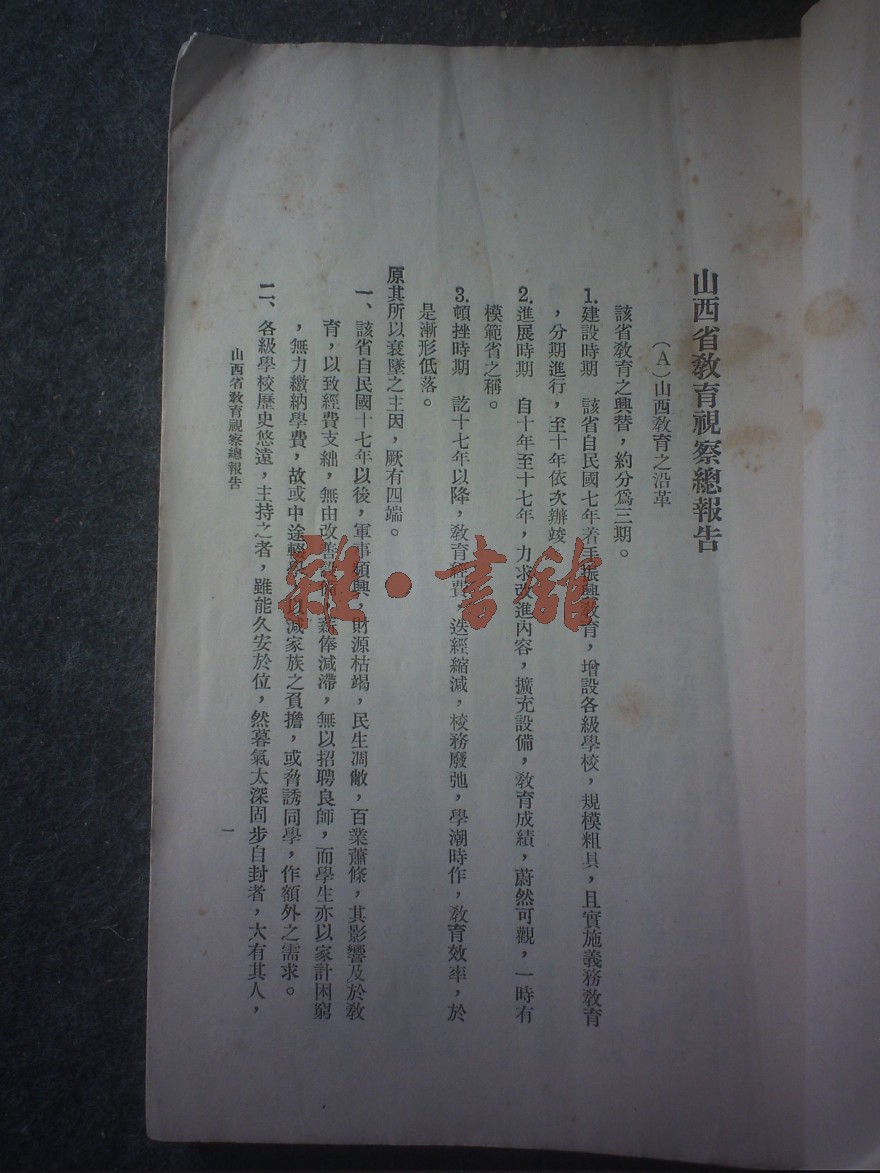 山西省教育視察總報告
（A）山西教育之沿革
該省教育之興替，約分爲三期。
1.建設時期　該省自民國七年着手振興教育，增設各級學校，規模粗具，且實施義務教育
，分期進行，至十年依次辦竣
2.進展時期　自十年至十七年，力求改進內容，擴充設備，教育成績，蔚然可觀，一時有
模範省之稱。
3.頓挫時期　訖十七年以降，教育經費，迭經縮減，校務廢弛，學潮時作，教育效率，於
是漸形低落。
原其所以衰墜之主因，厥有四端。
一、該省自民國十七年以後，軍事頻興，財源枯竭，民生凋敝，百業蕭條，其影響及於教
育，以致經費支絀，無由改善設備，薪俸減滯，無以招聘良師，而學生亦以家計困窮
，無力繳納學費，故或中途輟學，以減家族之負擔，或脅誘同學，作額外之需求。
二、各級學校歷史悠遠，主持之者，雖能久安於位，然暮氣太深固步自封者，大有其人，
山西省教育視察總報告
一
雜·書館